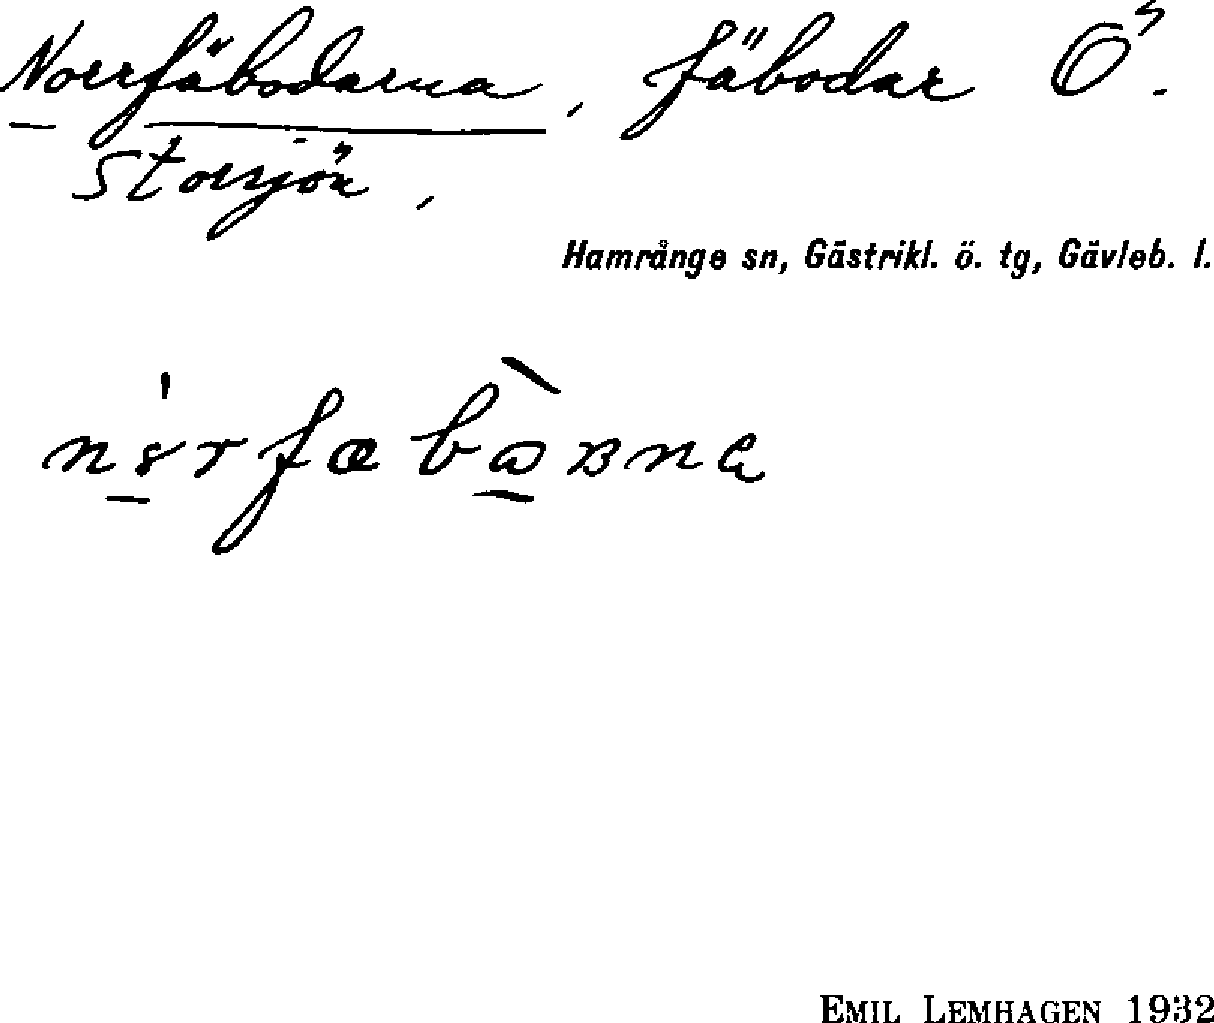 Norrfäbodarna, fäbodar Ö.
Storsjön,
Hamrånge sn, Gästrikl. ö. tg, Gävleb. l.
EMIL LEMHAGEN 1932